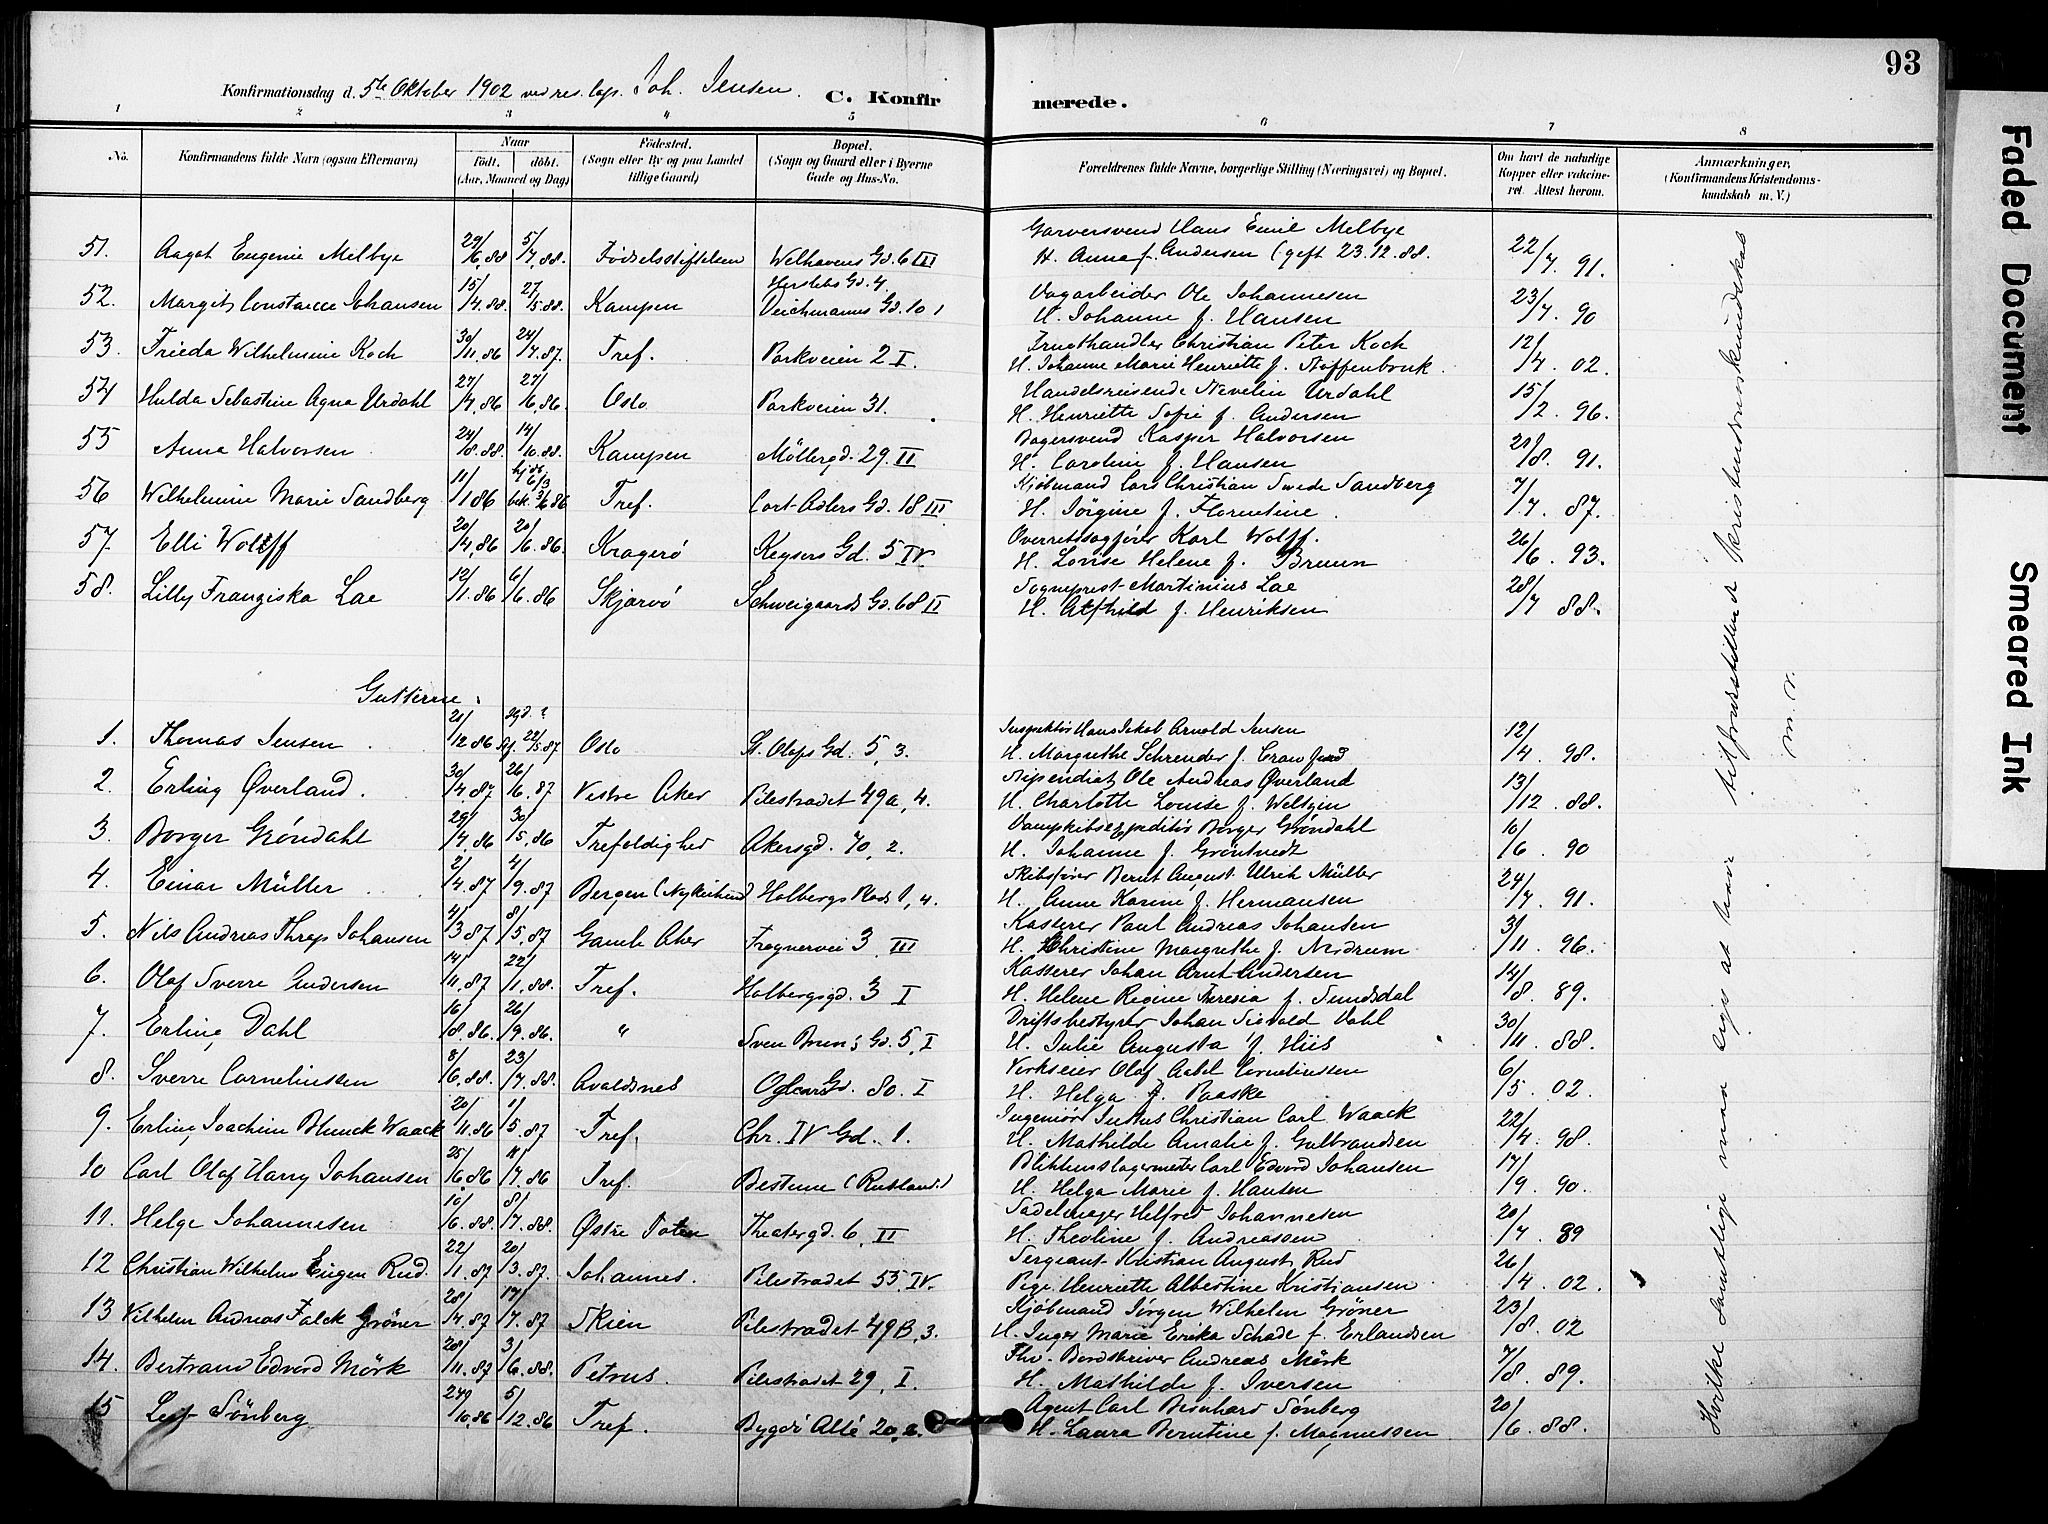 93
Konfirmationsdag d. 5te Oktober 1902 ved res. kap. Joh. Jensen. C. Konfirmerede.
1 2 3 4 5 6 7 8
No. Konfirmandens fulde Navn (ogsaa Efternavn) Naar født. døbt. (Aar, Maaned og Dag) Fødested. (Sogn eller By og paa Landet tillige Gaard) Bopæl. (Sogn og Gaard eller i Byerne Gade og Hus-No. Forældrenes fulde Navne, borgerlige Stilling (Næringsvei) og Bopæl. Om havt de naturlige Kopper eller vakcineret. Attest herom. Anmærkninger, (Konfirmandens Kristendomskundskab m. V.)
51. Aagot Eugenie Melbye 29/6.88 5/7.88. Fødselsstiftelsen Welhavens Gd. 6 III Garversvend Hans Emil Melbye
H. Anna f. Andersen (gift 23.12.88. 22/7. 91.
52. Margit Constance Johansen 15/4.88. 27/5.88. Kampen Herslebs Gd. 4. Deichmanns Gd. 10 I Vognarbeider Ole Johannesen
H. Johanne f. Hansen 23/7. 90
53. Frieda Wilhelmine Koch 30/11.86 24/7.87. Tref. Parkveien 2 I. Frugthandler Christian Peter Koch
H. Johanne Marie Henriette f. Stoffenbruk. 12/4. 02.
54 Hulda Sebastine Agna Urdahl 27/4.86 27/6.86. Oslo Parkveien 31. Handelsreisende Nevelin Urdahl
H. Henriette Sofie f. Andersen 15/2. 96.
55 Anna Halvorsen 24/8.88. 14/10.88. Kampen Møllergd. 29. II Bagersvend Kasper Halvorsen
H. Caroline f. Hansen 21/8. 91.
56 Wilhelmine Marie Sandberg 11/1 86 hj.db. 6/3 bek. 3/6 86 Tref. Cort-Adlers Gd. 18 III Kjøbmand Lars Christian Swede Sandberg
H. Jørgine f. Florentine. 7/7. 87.
57. Elli Wolff 20/4.86 20/6.86. Kragerø Keysers Gd. 5 IV. Overretssagfører Karl Wolff.
H. Louise Helene f. Bruun 26/6. 93.
58. Lilly Franziska Lae 12/1.86 6/6.86 Skjærvø Schweigaards Gd. 68 II Sogneprest Martinius Lae
H. Alfhild f. Henriksen 28/7 88.
Gutterne.
1. Thomas Jensen 21/12 86 22/5 87 Oslo St. Olafs Gd. 5, 3. Inspektør Hans Jakob Arnold Jensen
H. Margrethe Schrender f. Crawfurd 12/4. 98.
2. Erling Øverland. 30/4.87 26/6.87 Vestre Aker Pilestrædet 49a, 4. Stipendiat Ole Andreas Øverland
H. Charlotte Louise f. Weltzin 13/12. 88.
3. Borger Grøndahl 29/4.86 30/5.86 Trefoldighed Akersgd. 70, 2. Dampskibsexpeditør Borger Grøndahl
H. Johanne f. Grøntvedt 10/6. 90
4. Einar Müller 2/4.87 4/9.87 Bergen (Nykirken) Holbergs Plads 1, 4. Skibsfører Bernt August Ulrik Müller
H. Anne Karine f. Hermansen 24/7. 91.
5. Nils Andreas Thrap Johansen 4/3 87 8/5.87 Gamle Aker Frognervei 3 III Kasserer Paul Andreas Johansen
H. Christine Margrethe f. Modrum 3/11. 96.
6. Olaf Sverre Andersen 14/11.87 22/1.88. Tref. Holbergsgd. 3 I Kasserer Johan Arnt Andersen
H. Helene Regine Theresia f. Sundsdal 14/8. 89.
7. Erling Dahl 16/8.86. 26/9.86. " Sven Bruns Gd. 5, I Driftsbestyrer Johan Sievald Dahl
H. Julie Augusta f. Hiis 30/11. 88.
8. Sverre Corneliussen 8/6.88. 23/7.88. Avaldsnes Oscars Gd. 80. I Verkseier Olaf Aabel Corneliussen
H. Helga f. Paaske 6/5. 02.
9. Erling Joachim Blunck Waack 20/11.86 1/5.87 Tref. Chr. IV Gd. 1. Ingeniør Justus Christian Carl Waack
H. Mathilde Amalie f. Gulbrandsen 22/4. 98.
10 Carl Olaf Harry Johansen 25/6.86 11/7.86 Tref. Bestum (Rustland.) Blikkenslagermester Carl Edvard Johansen
H. Helga Marie f. Hansen 17/9. 90.
11. Helge Johannesen 10/6.88. 8/7.88. Østre Toten Theatergd. 6, II Sadelmager Helfred Johannesen
H. Theoline f. Andreassen 20/7. 89
12 Christian Wilhelm Eugen Rud. 22/1.87 20/3.87. Johannes. Pilestrædet 55, IV. Sergeant Kristian August Rud
Pige Henriette Albertine Kristiansen 26/4. 02.
13 Vilhelm Andreas Falck Grøner 28/4.87 17/7.87 Skien Pilestrædet 49B, 3. Kjøbmand Jørgen Wilhelm Grøner
H. Inger Marie Erika Schade f. Erlandsen 23/8. 02
14. Bertrand Edvard Mörk 28/11.87 3/6.88. Petrus. Pilestrædet 29, I. Fhv. Bordskriver Andreas Mörk
H. Mathilde f. Iversen 7/8. 89.
15 Leif Sönberg 10.86 5/12.86 Tref. Bygdø Allé 20, 2. Agent Carl Bernhard Sönberg
H. Laura Berntine f. Magnussen 20/6. 88.
Hvilke samtlige maa siges at have tilfredsstillende kristendomskundskab
m. v.
Faded Document
Smeared Ink